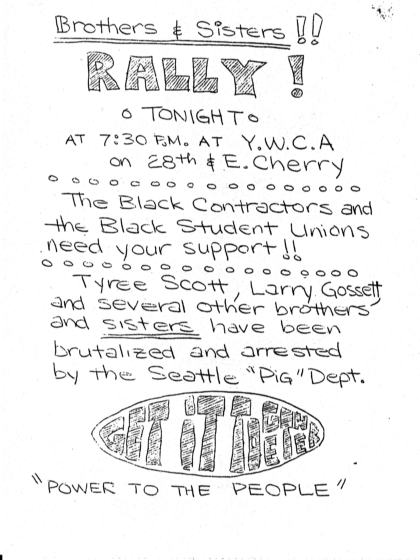 Brothers & Sisters !!
RALLY !
TONIGHT
AT 7:30 P.M. AT Y.W.C.A
on 28th & E. Cherry
The Black Contractors and
the Black Student Unions
need your support !!
Tyree Scott, Larry Gossett
and several other brothers
and sisters have been
brutalized and arrested
by the Seattle "Pig" Dept.
GET IT TOGETHER
"POWER TO THE PEOPLE"